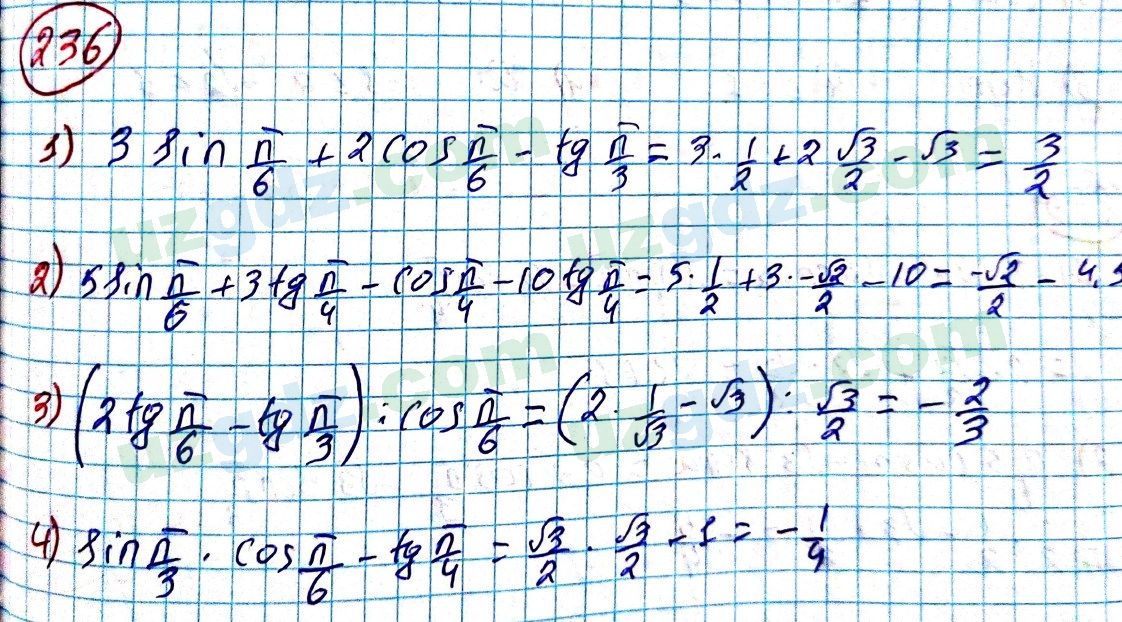 236
1) 3 sin π/6 + 2 cos π/6 - tg π/3 = 3 · 1/2 + 2 √3/2 - √3 = 3/2
2) 5 sin π/6 + 3 tg π/4 - cos π/4 - 10 tg π/4 = 5 · 1/2 + 3 · -√2/2 - 10 = -√2/2 - 4,5
3) (2 tg π/6 - tg π/3) : cos π/6 = (2 · 1/√3 - √3) : √3/2 = - 2/3
4) sin π/3 · cos π/6 - tg π/4 = √3/2 · √3/2 - 1 = - 1/4
uzgdz.com
uzgdz.com
uzgdz.com
uzgdz.com